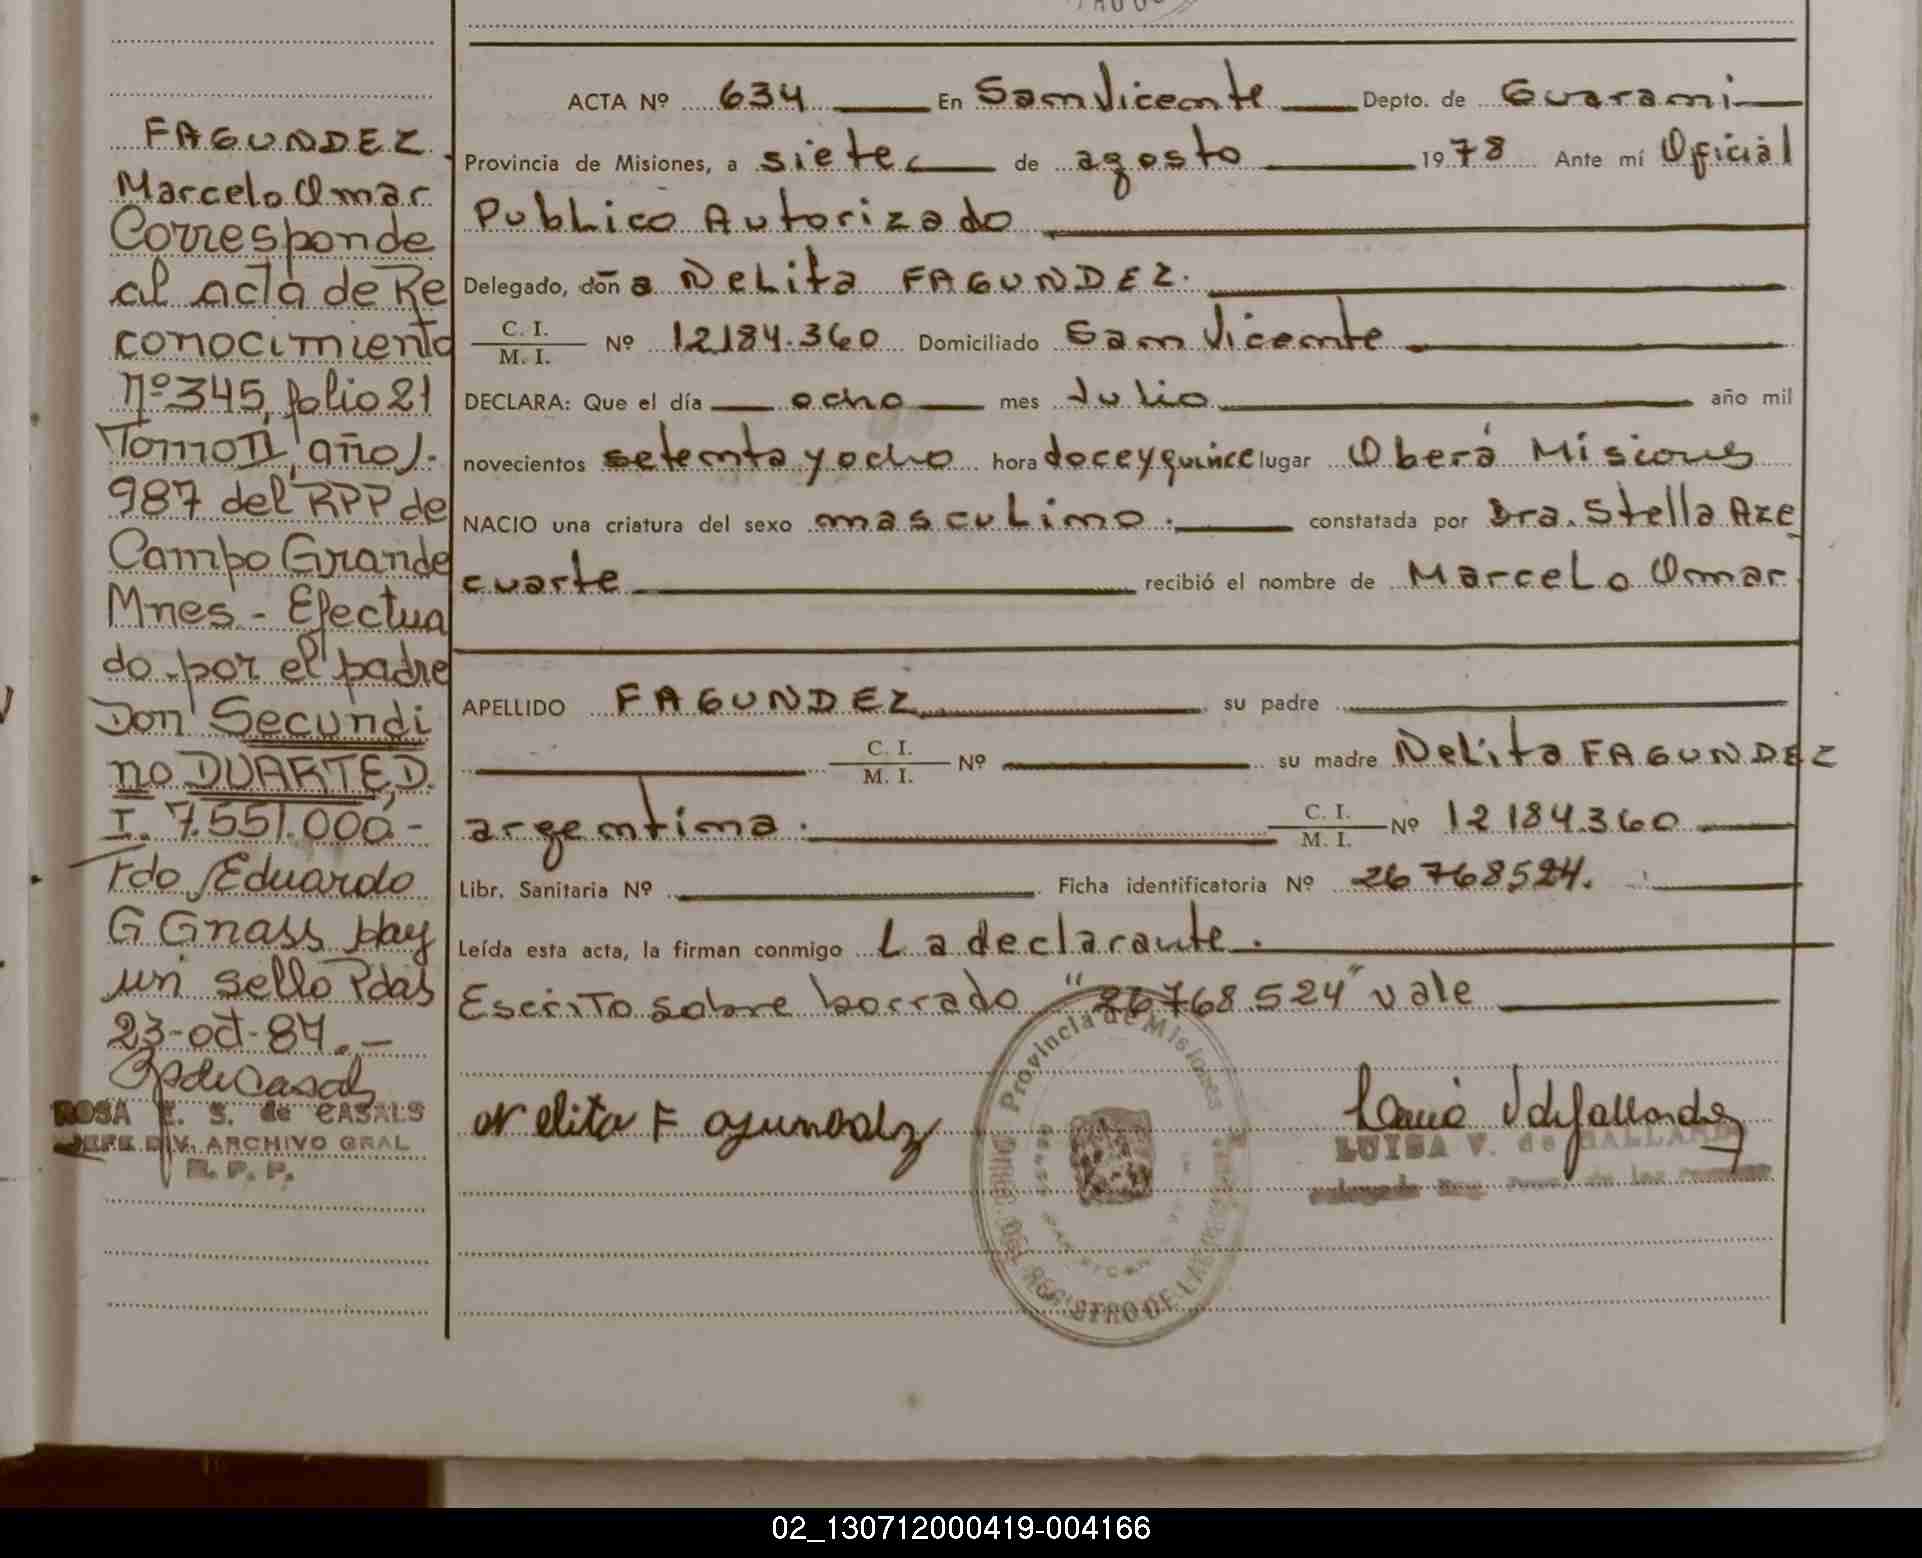 FAGUNDEZ
Marcelo Omar
Corresponde
al acta de Re
conocimiento
Nº 345, folio 21
Tomo II, año 1.
987 del RPP de
Campo Grande
Mnes - Efectua
do por el padre
Don Secundi
no DUARTE, D.
I. 7.551.000 -
Fdo Eduardo
G Gnass Hay
un sello Pdas
23-oct-87.-
ROSA E. S. de CASALS
JEFE DIV. ARCHIVO GRAL
R. P. P.
ACTA Nº 634 En San Vicente Depto. de Guarani
Provincia de Misiones, a siete de agosto 1978 Ante mí Oficial
Publico Autorizado
Delegado, doña Nelita FAGUNDEZ.
C. I.
M. I. Nº 12184.360 Domiciliado San Vicente
DECLARA: Que el día ocho mes Julio año mil
novecientos setenta y ocho hora doce y quince lugar Oberá Misiones
NACIO una criatura del sexo masculino. constatada por Dra. Stella Aze
cuarte recibió el nombre de Marcelo Omar
APELLIDO FAGUNDEZ su padre
C. I.
M. I. Nº su madre Nelita FAGUNDEZ
argentina. C. I.
M. I. Nº 12184.360
Libr. Sanitaria Nº Ficha identificatoria Nº 26768524.
Leída esta acta, la firman conmigo La declarante.
Escrito sobre borrado "26768.524" vale
Provincia de Misiones
DIREC. DEL REGISTRO DE LAS
Nelita Fagundez
LUISA V. de GALLARDO
02_130712000419-004166